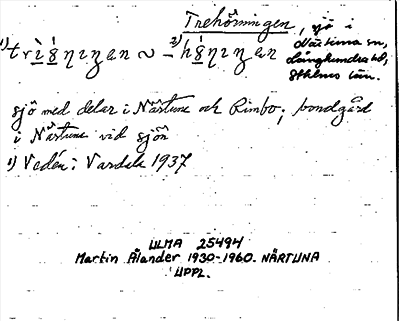 Trehörningen, sjö i
Närtuna sn,
Långhundra hd,
Sthlms län.
1) trìȣ́ŋıŋan ~ 2) –hȣ̀ŋıŋan
sjö med delar i Närtuna och Rimbo; bondgård
i Närtuna vid sjön
1) Vedén: Vardala 1937
ULMA 25494
Martin Ålander 1930-1960. NÄRTUNA
UPPL.